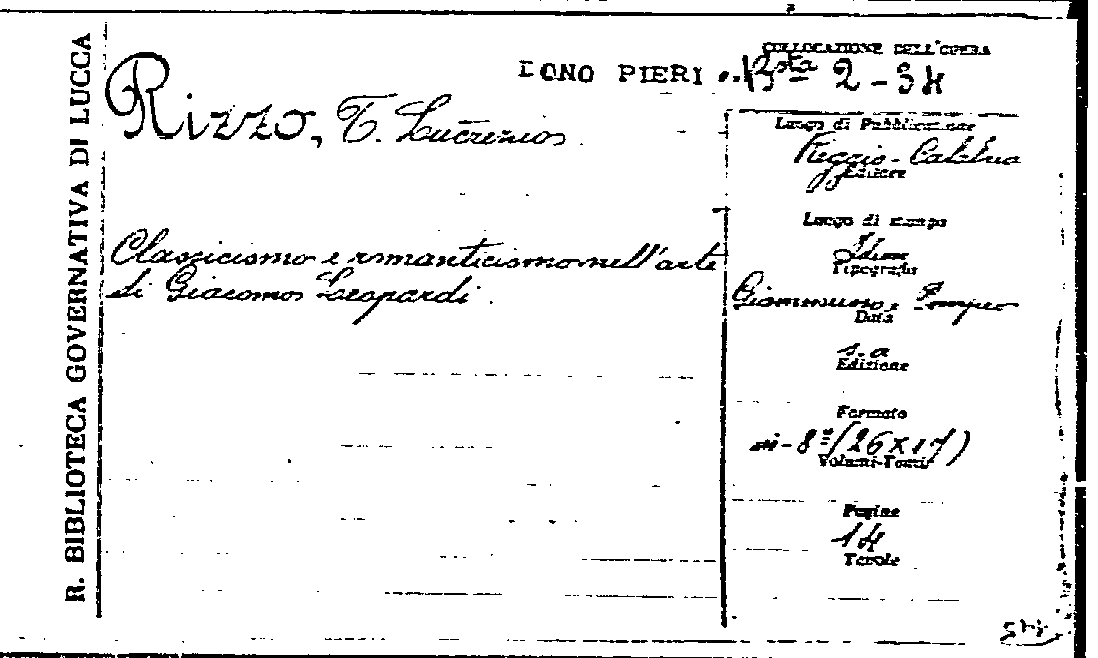 R. BIBLIOTECA GOVERNATIVA DI LUCCA
COLLOCAZIONE DELL'OPERA
DONO PIERI Bsta 2-34
Rizzo, T. Lucrezio
Classicismo e romanticismo nell'arte
di Giacomo Leopardi.
Luogo di Pubblicazione
Reggio-Calabria
Editore
Luogo di stampa
Idem
Tipografia
e
Data
s. a
Edizione
Formato
in-8° (26×17)
Volumi-Tomi
Pagine
14
Tavole